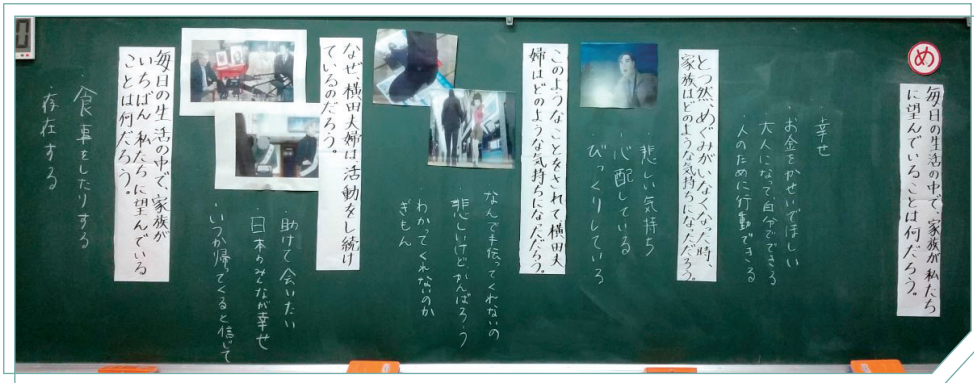 め
毎日の生活の中で、家族が私たち
に望んでいることは何だろう。
・幸せ
・お金をかせいでほしい
・大人になって自分でできる
・人のために行動できる
とつ然、めぐみがいなくなった時、
家族はどのような気持ちになっただろう。
・悲しい気持ち
心配している
びっくりしている
このようなことをされて横田夫
婦はどのような気持ちになんだろう。
・なんで手伝ってくれないの
・悲しいけどがんばろう
・わかってくれないのか
ぎもん
なぜ、横田夫婦は活動をし続け
ているのだろう。
・助けて会いたい
・日本のみんなが幸せ
・いつか帰ってくると信じて
毎日の生活の中で、家族が
いちばん私たちに望んでいる
ことは何だろう。
・食事をしたりする
・存在する